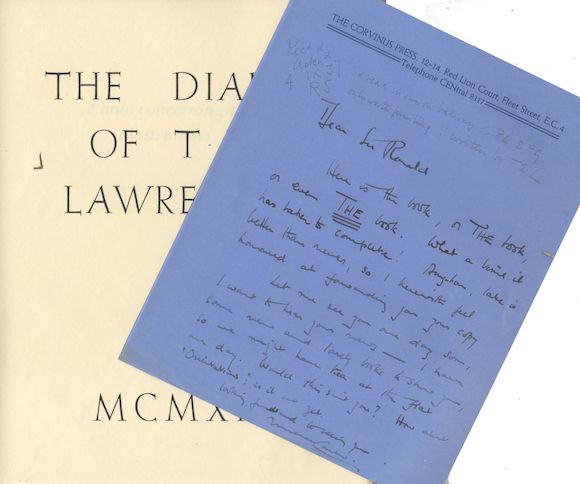 THE DIA
OF T
LAWRE
MCMX
THE CORVINUS PRESS, 12-14, Red Lion Court, Fleet Street, E.C.4
Telephone CENtral 8317
Dear Sir Ronald
Here is the book, or THE book,
or even THE book. What a time it
has taken to complete! Anyhow, late is
better than never, so I herewith feel
honoured at forwarding you your copy
Let me see you one day soon,
I want to hear your news — I have
some new and lovely books to show you,
so we might have tea at the flat
one day. Would this suit you? How about
"Orientations": is it out yet
looking forward to seeing you